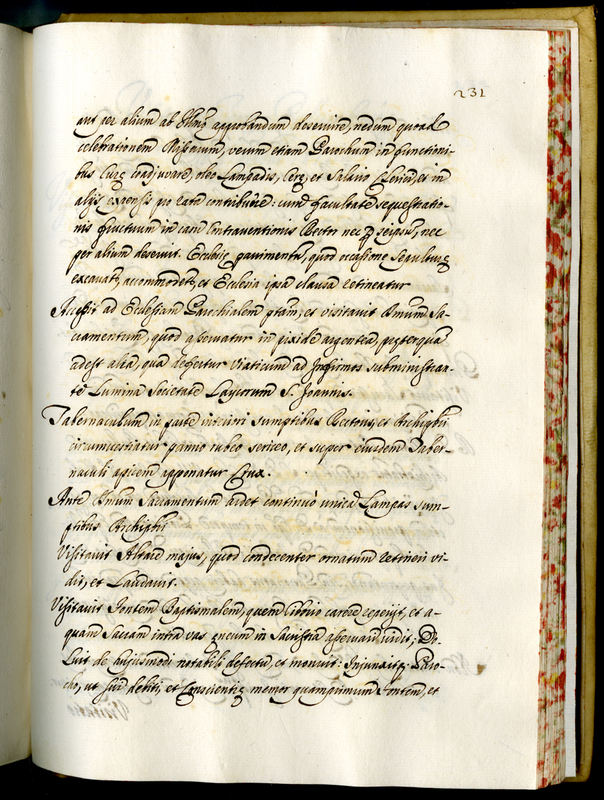 231
aut per alium ab Illmo approbandum deservire, nedum quoad
celebrationem Missarum, verum etiam Parochum in functioni-
bus Curæ coadjuvare, oleo Lampadis, Ceræ, et Salario Clerici, et in
alijs expensis pro rata contribuere: cum facultate sequestratio-
nis fructuum in casu Contraventionis Rectori nec p seipsum, nec
per alium deservit. Ecclesiæ pavimentum, quod occasione Sepulturæ
excavatr, accommodetr, et Ecclesia ipsa clausa retineatur
Accessit ad Ecclesiam Parochialem ptam, et visitavit Smum Sa-
cramentum, quod asservatur in pixide argentea, præterquam
adest alia, qua defertur Viaticum ad Infirmos subministran-
te Lumina Societate Laycorum S. Joannis.
Tabernaculum in parte interiori sumptibus Rectoris, et Archipbri
circumvestiatur panno rubeo sericeo, et super eiusdem Taber-
naculi apicem apponatur Crux.
Ante Smum Sacramentum ardet continuò unica Lampas sum-
ptibus Archipbri
Visitavit Altare majus, quod condecenter ornatum retineri vi-
dit, et Laudavit.
Visitavit Fontem Baptismalem, quem Ciborio carere reperijt, et a-
quam Sacram intra vas æneum in Sacristia asservari vidit; Do-
luit de hujusmodi notabili defectu, et monuit: Injunxitq; Paro-
cho, ut sui debiti, et Conscientiæ memor quamprimum Fontem, et